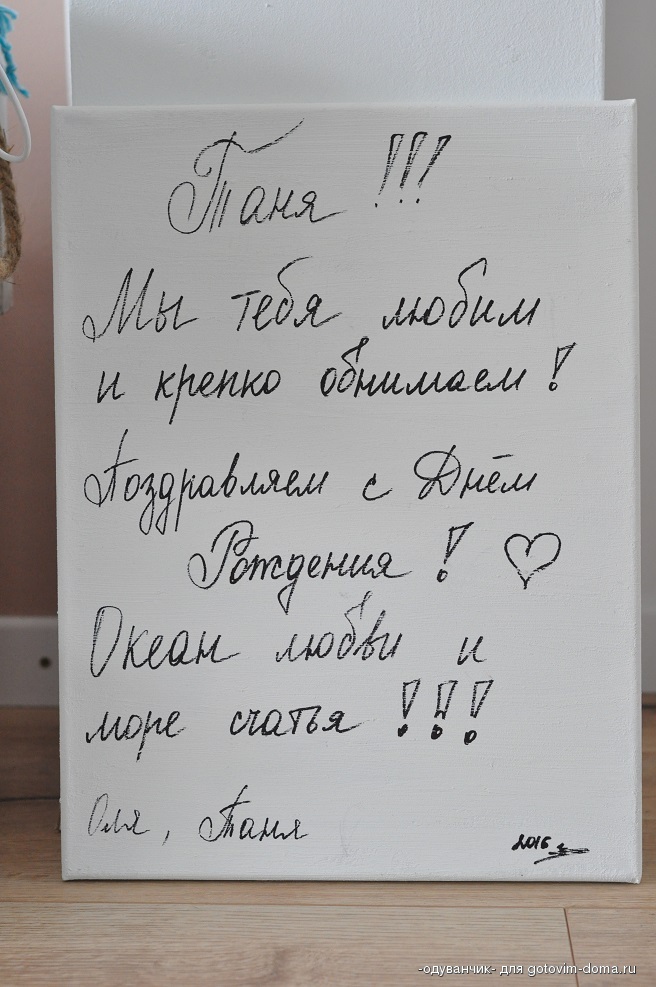 Таня !!!
Мы тебя любим
и крепко обнимаем !
Поздравляем с Днём
Рождения ! ♡
Океан любви и
море счатья !!!
Оля, Таня
2016
-одуванчик- для gotovim-doma.ru